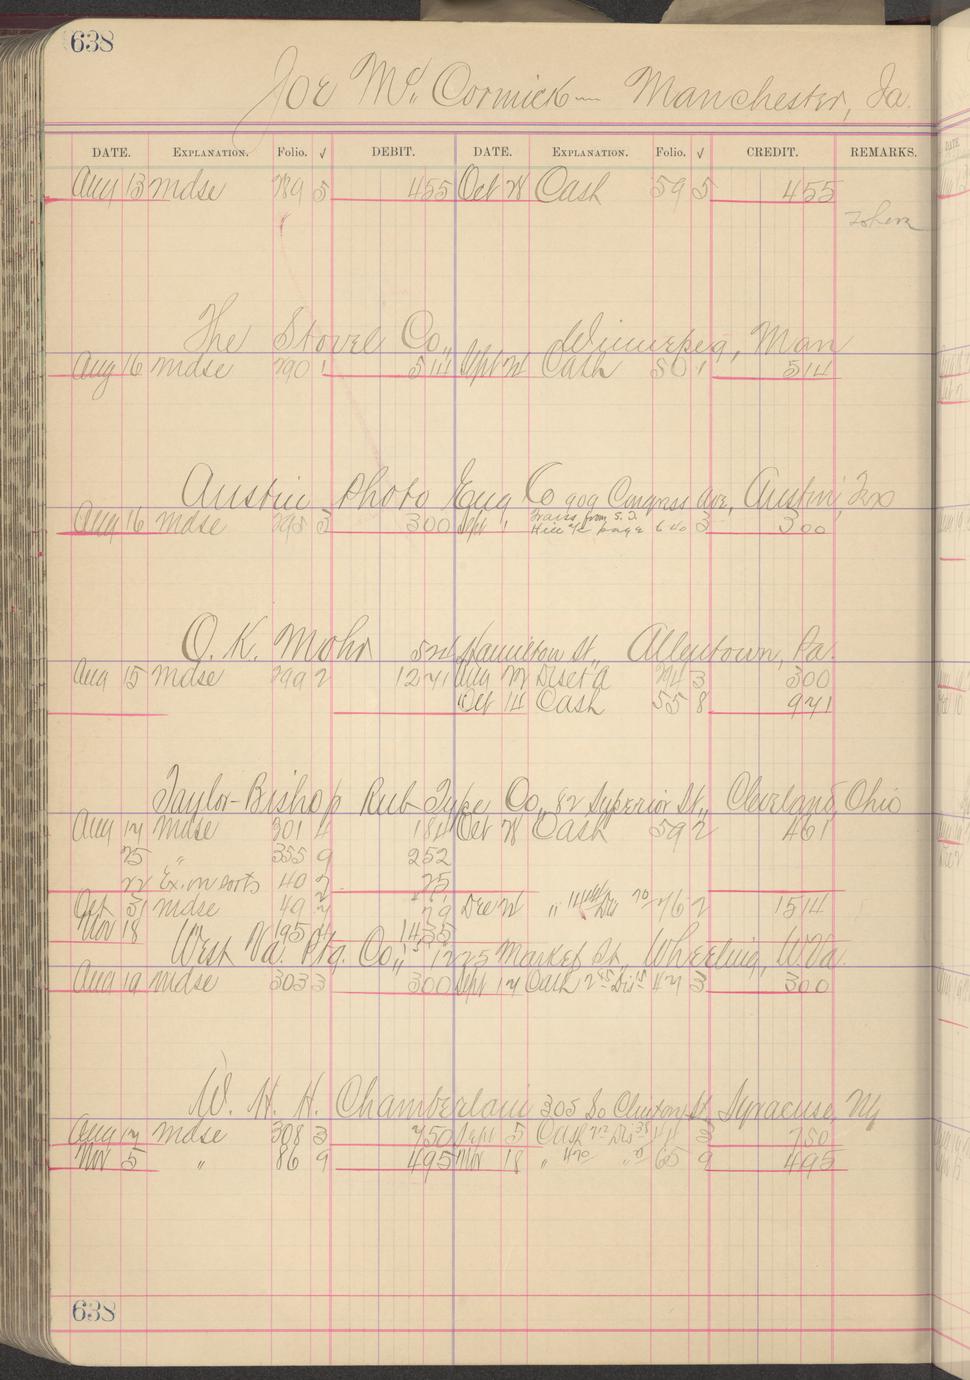 638
Joe McCormick — Manchester, Ia.
DATE. EXPLANATION. Folio. √ DEBIT. DATE. EXPLANATION. Folio. √ CREDIT. REMARKS.
Aug 13 mdse 289 5 455 Oct 28 Cash 59 5 455
The Stovel Co., Winnepeg, Man
Aug 16 mdse 290 1 514 Sept 24 Cash 50 1 514
Austin Photo Eng Co 909 Congress Ave, Austin, Tex
Aug 16 mdse 295 3 300 Sept 1 Trans from S. J.
Hill a/c page 640 3 300
O. K. Mohr 522 Hamilton St., Allentown, Pa.
Aug 15 mdse 299 2 1271 Aug 22 Disct a 294 3 300
Oct 14 Cash 55 8 971
Taylor-Bishop Rub Type Co., 82 Superior St., Cleveland, Ohio
Aug 17 mdse 301 4 184 Oct 28 Cash 59 2 461
25 " 355 9 252
22 Ex. on sorts 40 2 25
Oct 31 mdse 49 7 79 Dec 21 " 76 2 1514
Nov 18 " 195 4 1435
West Va. Ptg. Co., 1225 Market St, Wheeling, W.Va.
Aug 19 mdse 303 3 300 Sept 17 Cash 285 Dis 15 47 3 300
W. H. H. Chamberlain 305 So Clinton St, Syracuse, Ny
Aug 17 mdse 308 3 750 Sept 5 Cash 712 Dis 38 3 750
Nov 5 " 86 9 495 Nov 18 " 470 " 65 9 495
638